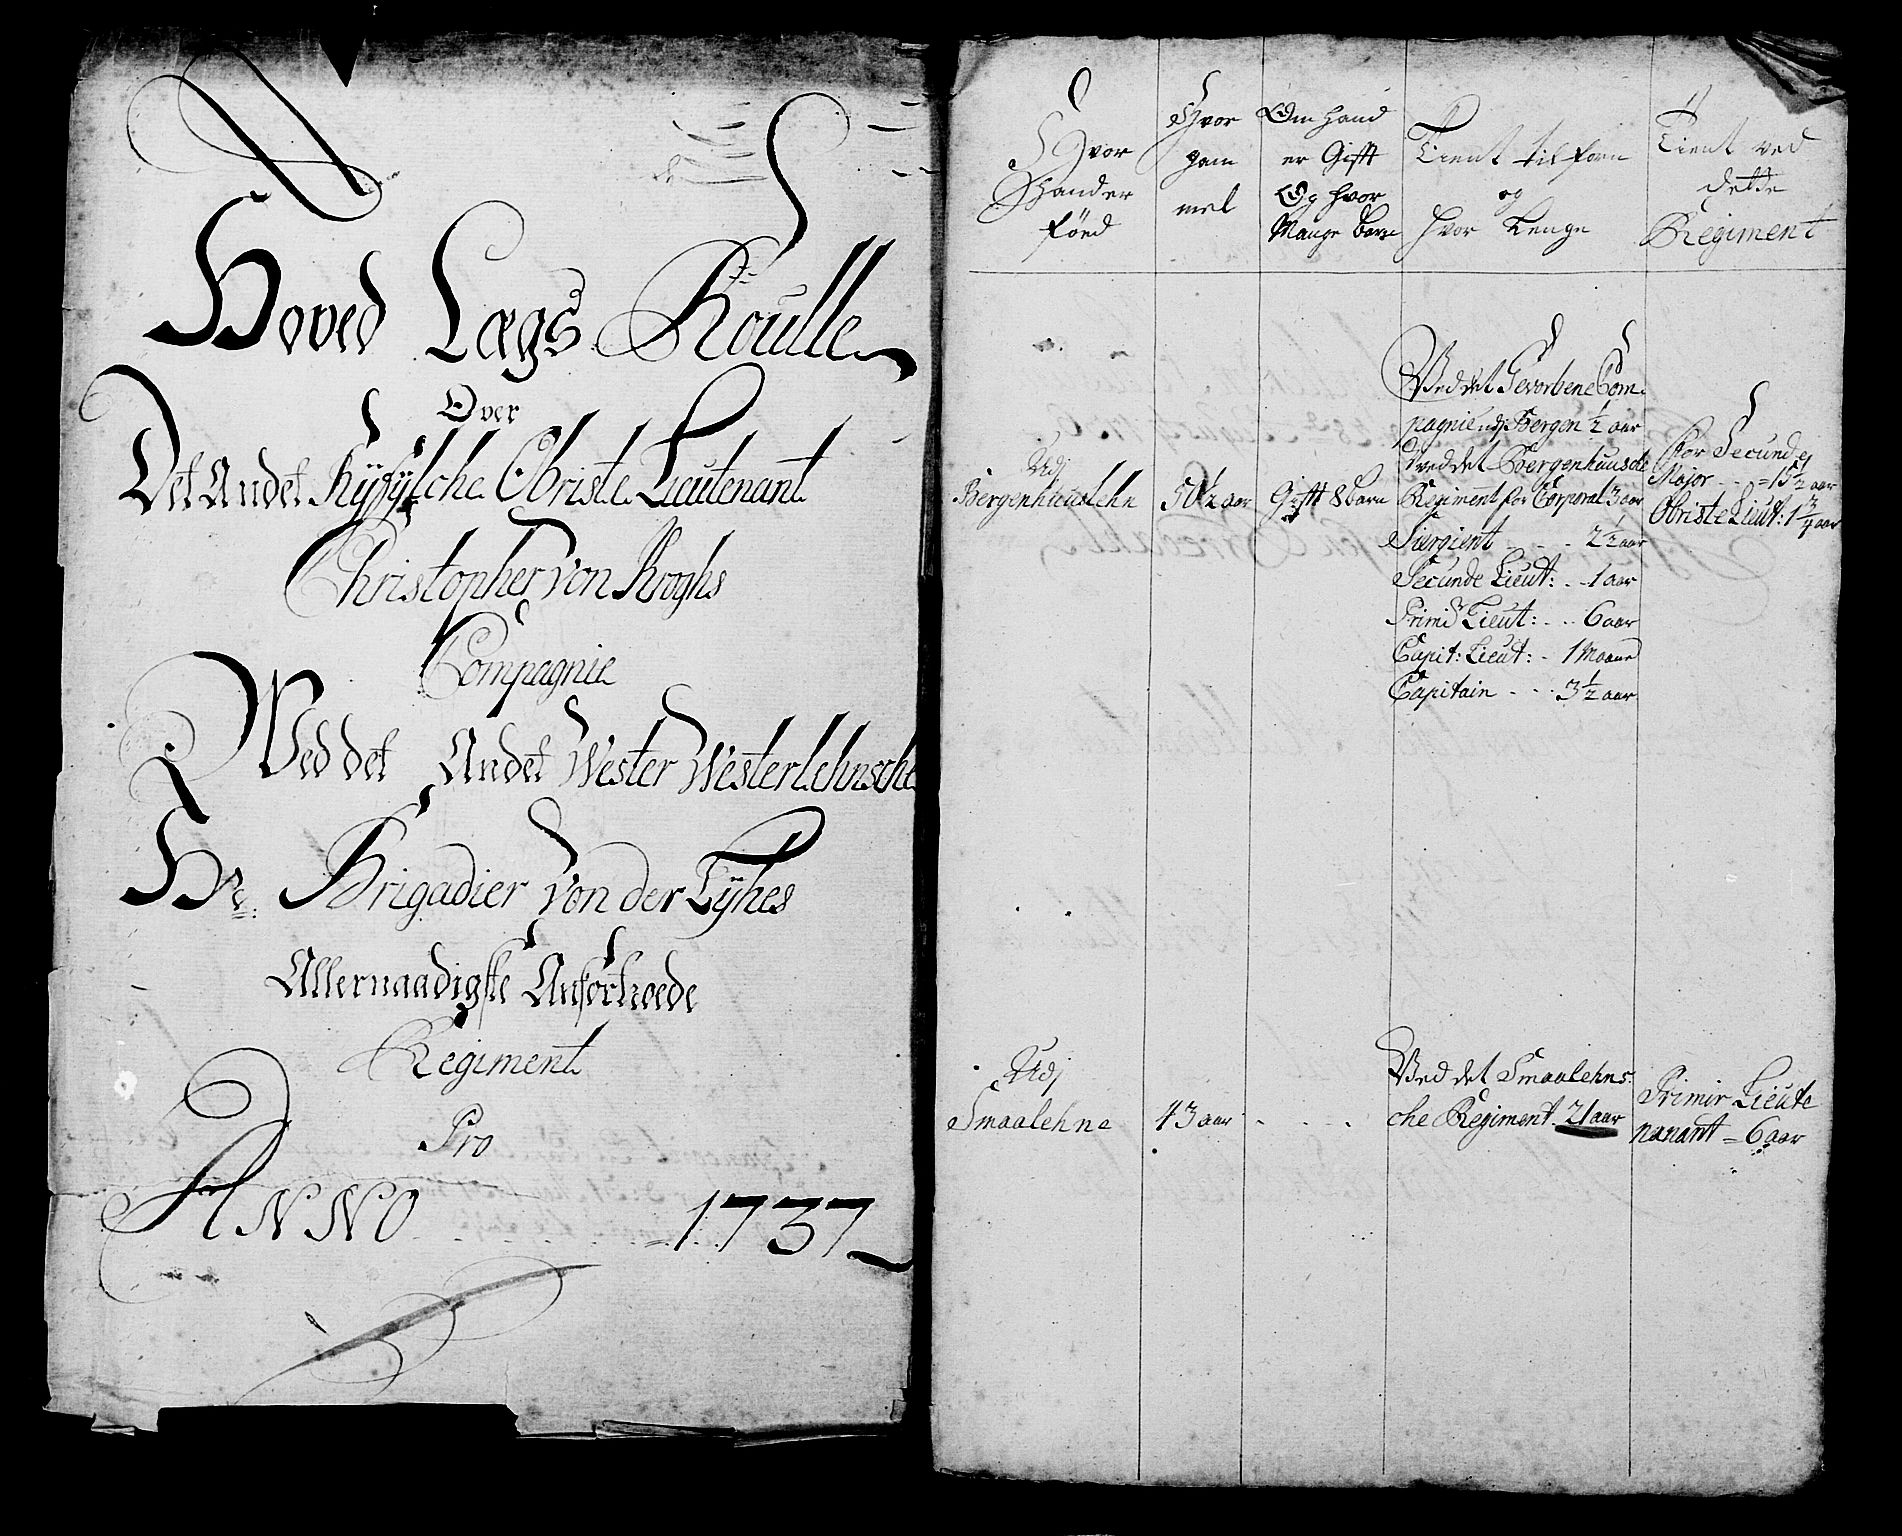 Hoved Lægs Roulle
Over
Det Andet Ryfylche Obriste Lieutenant
Christopher von Kroghs
Compagnie
Ved det Andet Wester Westerlehnsche
Hr: Brigadier von der Lühes
Allernaadigste Anfortroede
Regiment
Pro
ANNO 1737
Hvor
Hander
föed
Hvor
gam
mel
Om hand
er Gifft
Og hvor
Mange Børn
Tient tilforn
og
hvor Lenge
Tient ved
dette
Regiment
Udj
Bergenhuuslehn
50 1/2 aar
Gifft 8 børn
Ved det Gevorbene Com-
pagnie udj Bergen 1/2 aar
ved det Bergenhuusche
Regiment for Corporal 3 aar
Siergient - - - 2 1/2 aar
Secunde Lieut: - - 1 aar
Primr Lieut: - - 6 aar
Capit: Lieut: - 1 Maaned
Capitain - - - 3 1/2 aar
For Secunde
Major - - = 15 1/2 aar
Obriste Lieut: 1 3/4 aar
Udj
Smaalehne
43 aar
- - - -
Ved det Smaalehns-
che Regiment 21 aar
Primir Lieute
nanant = 6 aar